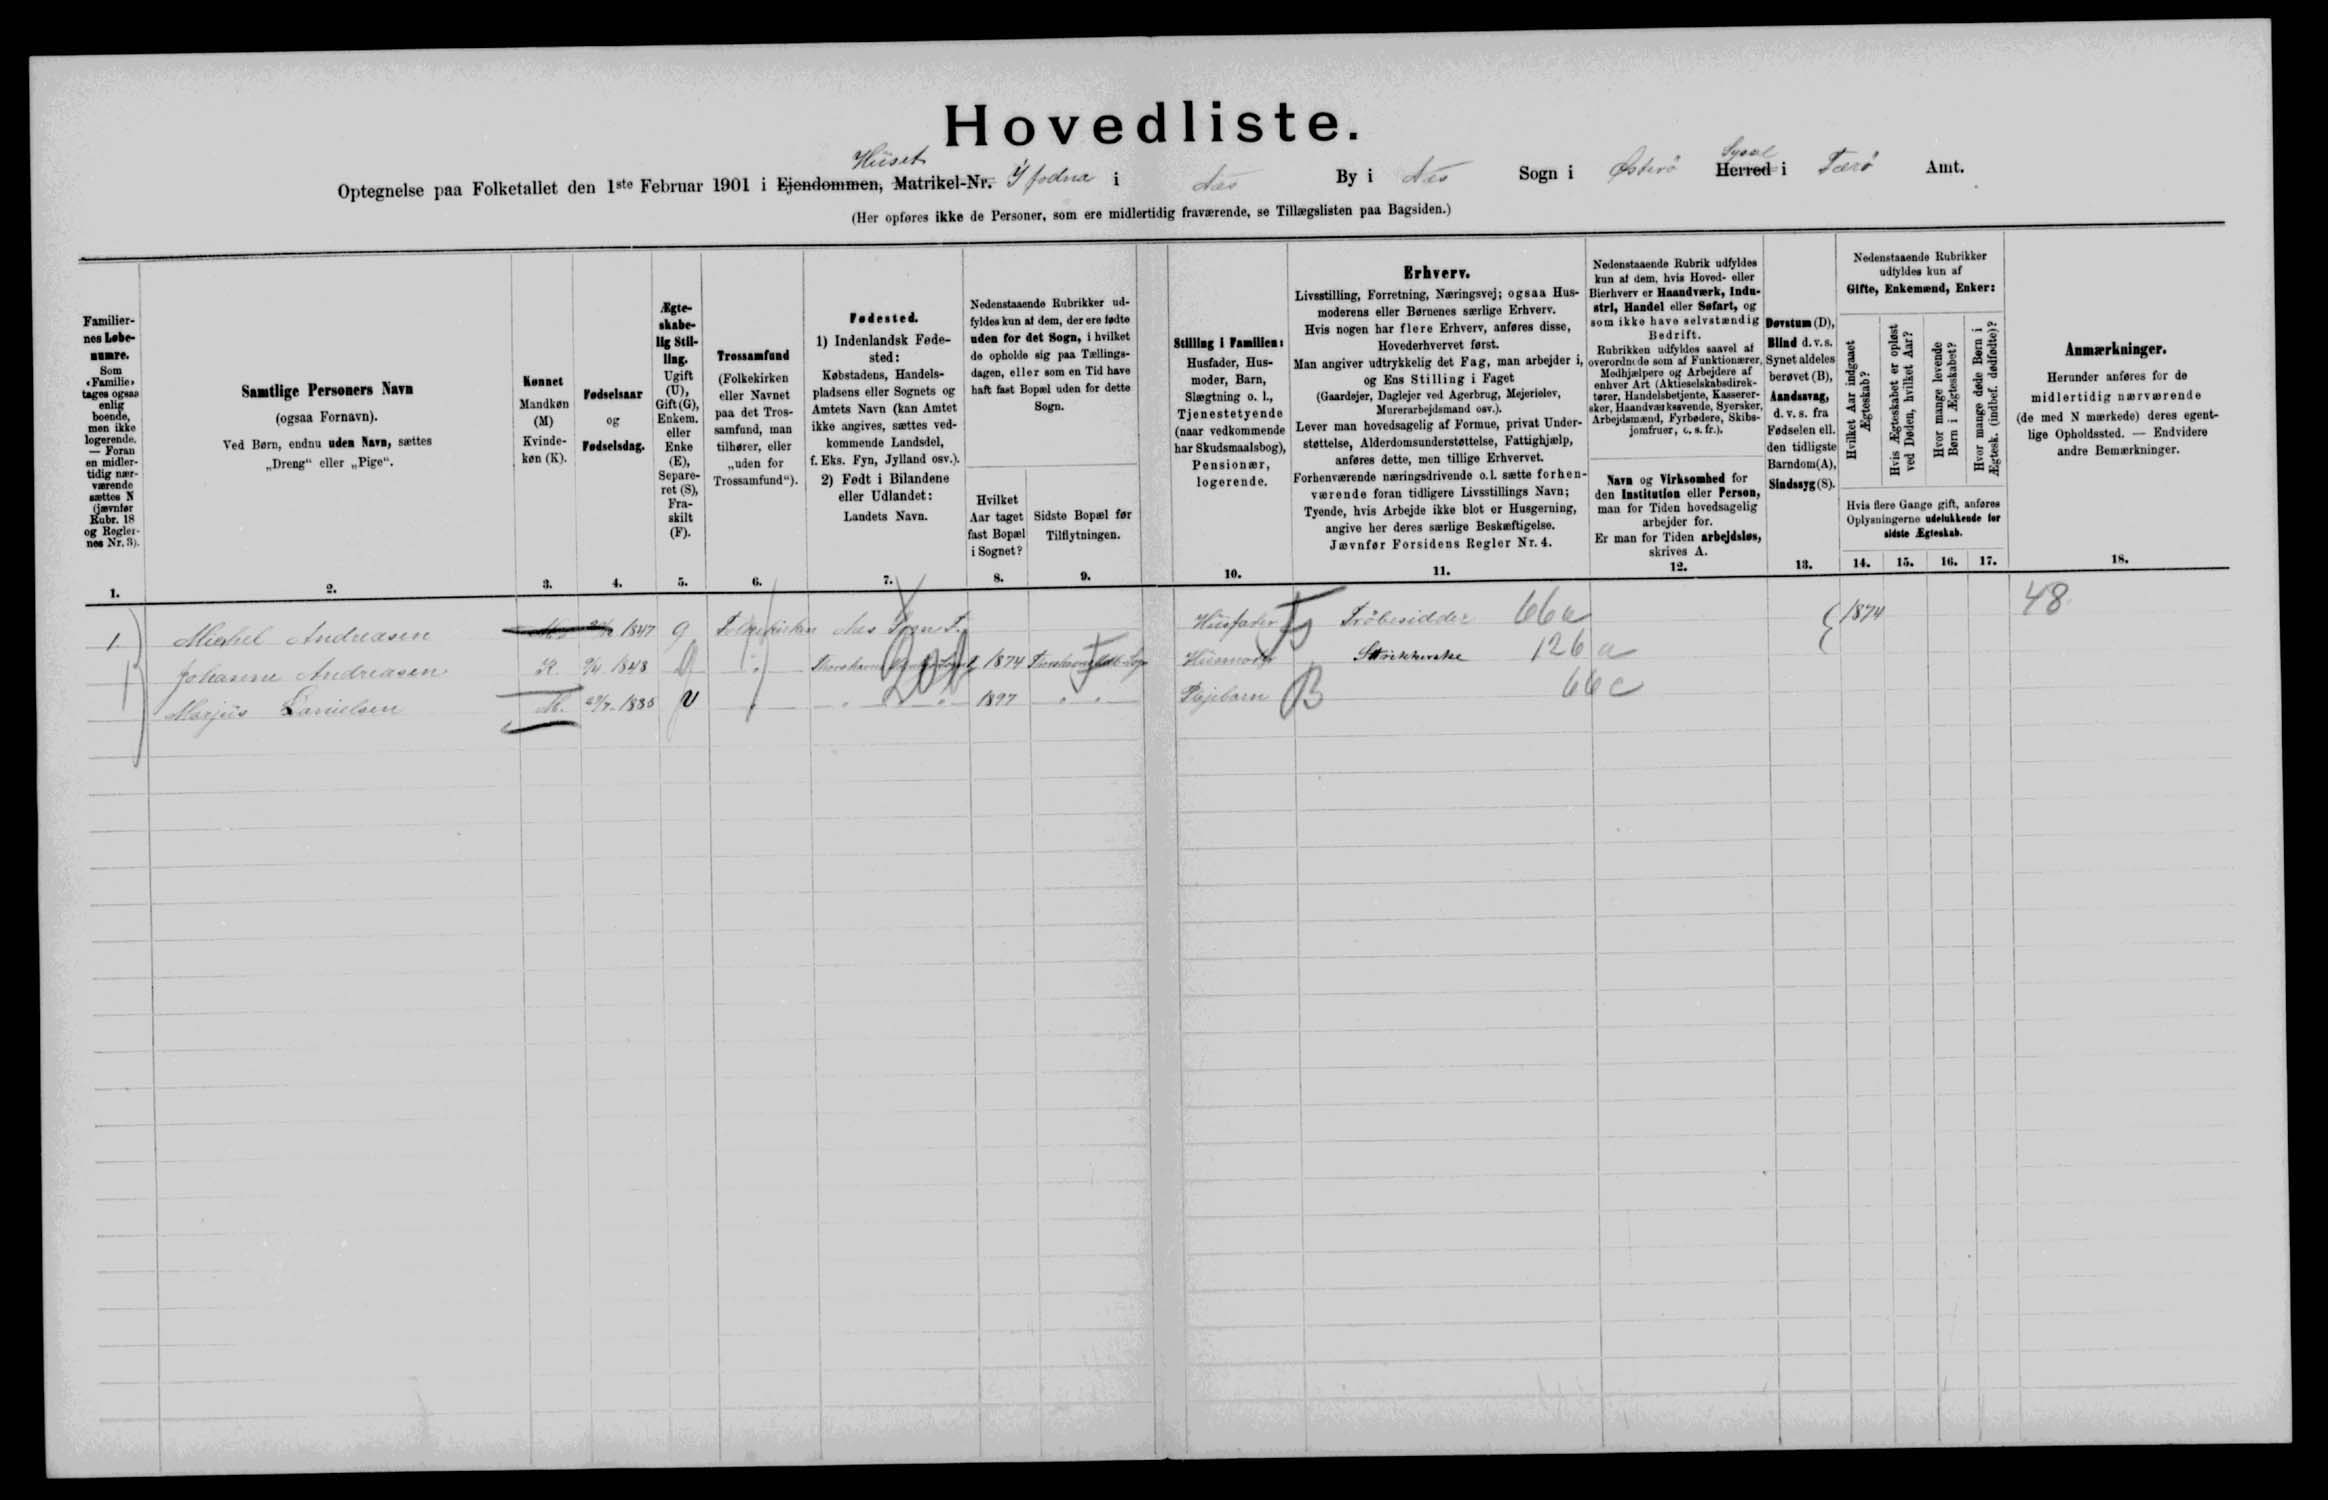 Hovedliste.
Huset Syssel
Optegnelse paa Folketallet den 1ste Februar 1901 i Ejendommen, Matrikel-Nr. Ÿ fodna i Næs By i Næs Sogn i Østerö Herred i Færö Amt.
(Her opføres ikke de Personer, som ere midlertidig fraværende, se Tillægslisten paa Bagsiden.)
Familier-
nes Løbe-
numre.
Som
«Familie»
tages ogsaa
enlig
boende,
men ikke
logerende.
— Foran
en midler-
tidig nær-
værende
sættes N
(jævnfør
Rubr. 18
og Regler-
nes Nr. 3).
1.
Samtlige Personers Navn
(ogsaa Fornavn).
Ved Børn, endnu uden Navn, sættes
„Dreng“ eller „Pige“.
2.
Kønnet
Mandkøn
(M)
Kvinde-
køn (K).
3.
Fødselsaar
og
Fødselsdag.
4.
Ægte-
skabe-
lig Stil-
ling.
Ugift
(U),
Gift (G),
Enkem.
eller
Enke
(E),
Separe-
ret (S),
Fra-
skilt
(F).
5.
Trossamfund
(Folkekirken
eller Navnet
paa det Tros-
samfund, man
tilhører, eller
„uden for
Trossamfund“).
6.
Fødested.
1) Indenlandsk Føde-
sted:
Købstadens, Handels-
pladsens eller Sognets og
Amtets Navn (kan Amtet
ikke angives, sættes ved-
kommende Landsdel,
f. Eks. Fyn, Jylland osv.).
2) Født i Bilandene
eller Udlandet:
Landets Navn.
7.
Nedenstaaende Rubrikker ud-
fyldes kun af dem, der ere fødte
uden for det Sogn, i hvilket
de opholde sig paa Tællings-
dagen, eller som en Tid have
haft fast Bopæl uden for dette
Sogn.
Hvilket
Aar taget
fast Bopæl
i Sognet?
8.
Sidste Bopæl før
Tilflytningen.
9.
Stilling i Familien:
Husfader, Hus-
moder, Barn,
Slægtning o. l.,
Tjenestetyende
(naar vedkommende
har Skudsmaalsbog),
Pensionær,
logerende.
10.
Erhverv.
Livsstilling, Forretning, Næringsvej; ogsaa Hus-
moderens eller Børnenes særlige Erhverv.
Hvis nogen har flere Erhverv, anføres disse,
Hovederhvervet først.
Man angiver udtrykkelig det Fag, man arbejder i,
og Ens Stilling i Faget
(Gaardejer, Daglejer ved Agerbrug, Mejerielev,
Murerarbejdsmand osv.).
Lever man hovedsagelig af Formue, privat Under-
støttelse, Alderdomsunderstøttelse, Fattighjælp,
anføres dette, men tillige Erhvervet.
Forhenværende næringsdrivende o. l. sætte forhen-
værende foran tidligere Livsstillings Navn;
Tyende, hvis Arbejde ikke blot er Husgerning,
angive her deres særlige Beskæftigelse.
Jævnfør Forsidens Regler Nr. 4.
11.
Nedenstaaende Rubrik udfyldes
kun af dem, hvis Hoved- eller
Bierhverv er Haandværk, Indu-
stri, Handel eller Søfart, og
som ikke have selvstændig
Bedrift.
Rubrikken udfyldes saavel af
overordnede som af Funktionærer,
Medhjælpere og Arbejdere af
enhver Art (Aktieselskabsdirek-
tører, Handelsbetjente, Kasserer-
sker, Haandværkssvende, Syersker,
Arbejdsmænd, Fyrbødere, Skibs-
jomfruer, o. s. fr.).
Navn og Virksomhed for
den Institution eller Person,
man for Tiden hovedsagelig
arbejder for.
Er man for Tiden arbejdsløs,
skrives A.
12.
Døvstum (D),
Blind d. v. s.
Synet aldeles
berøvet (B),
Aandssvag,
d. v. s. fra
Fødselen ell.
den tidligste
Barndom (A),
Sindssyg (S).
13.
Nedenstaaende Rubrikker
udfyldes kun af
Gifte, Enkemænd, Enker:
Hvilket Aar indgaaet
Ægteskab?
Hvis Ægteskabet er opløst
ved Døden, hvilket Aar?
Hvor mange levende
Børn i Ægteskabet?
Hvor mange døde Børn i
Ægtesk. (indbef. dødfødte)?
Hvis flere Gange gift, anføres
Oplysningerne udelukkende for
sidste Ægteskab.
14. 15. 16. 17.
Anmærkninger.
Herunder anføres for de
midlertidig nærværende
(de med N mærkede) deres egent-
lige Opholdssted. — Endvidere
andre Bemærkninger.
18.
1. Michel Andreasen 1847 G Folkekirken Næs Husfader Fröbesidder 66a 1874 48
Johanne Andreasen K. 1848 G 1874 Husmoder Strikkerske 126a
Marjus Danielsen M. U 1897 Plejebarn B 66c